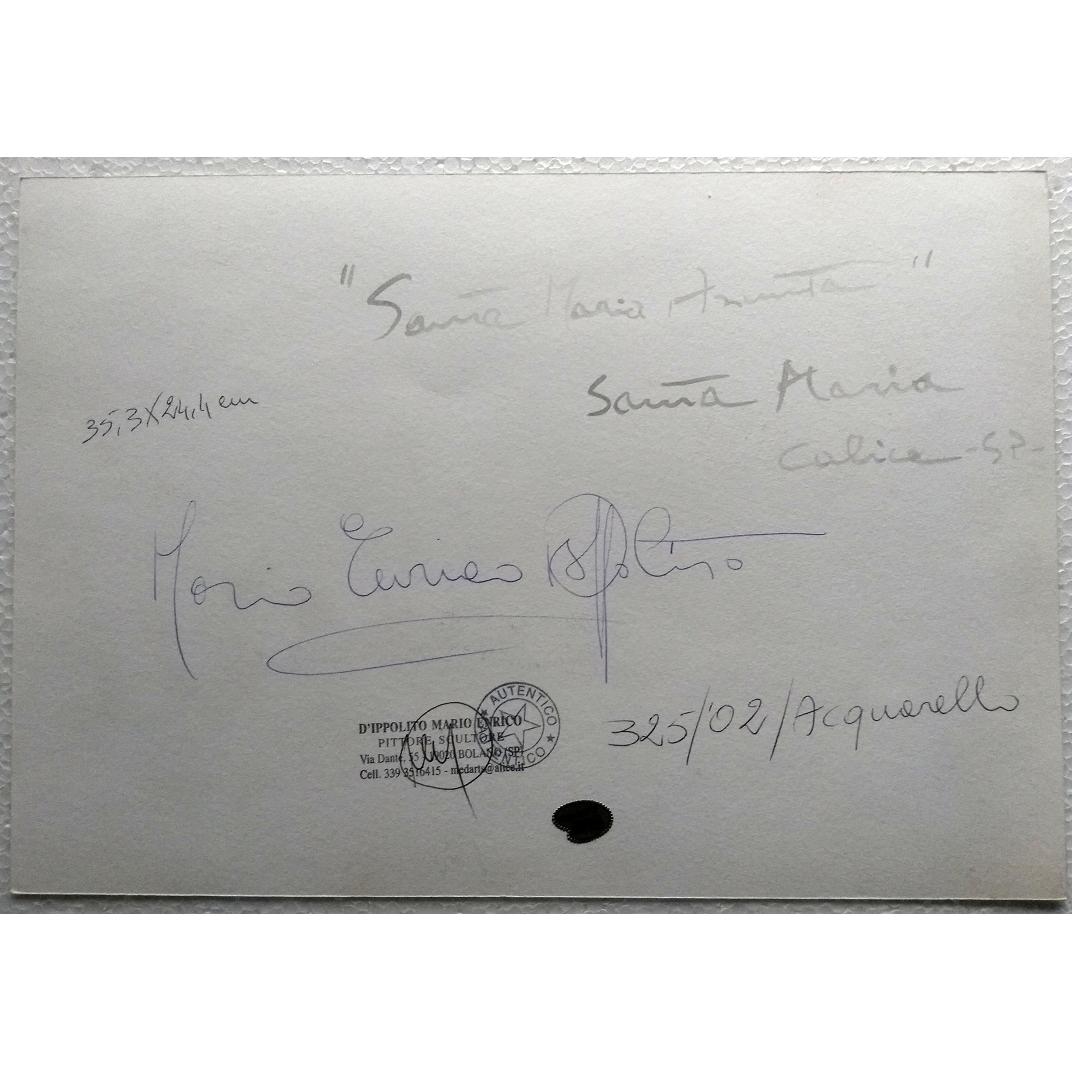 "Santa Maria Assunta"
Santa Maria
Calice -SP-
35,3X24,4 cm
Mario Enrico D'Ippolito
D'IPPOLITO MARIO ENRICO
PITTORE SCULTORE
Via Dante, 55 - 19020 BOLANO (SP)
Cell. 339 3516415 - medarts@alice.it
AUTENTICO ★ AUTENTICO ★
325/'02/Acquarello